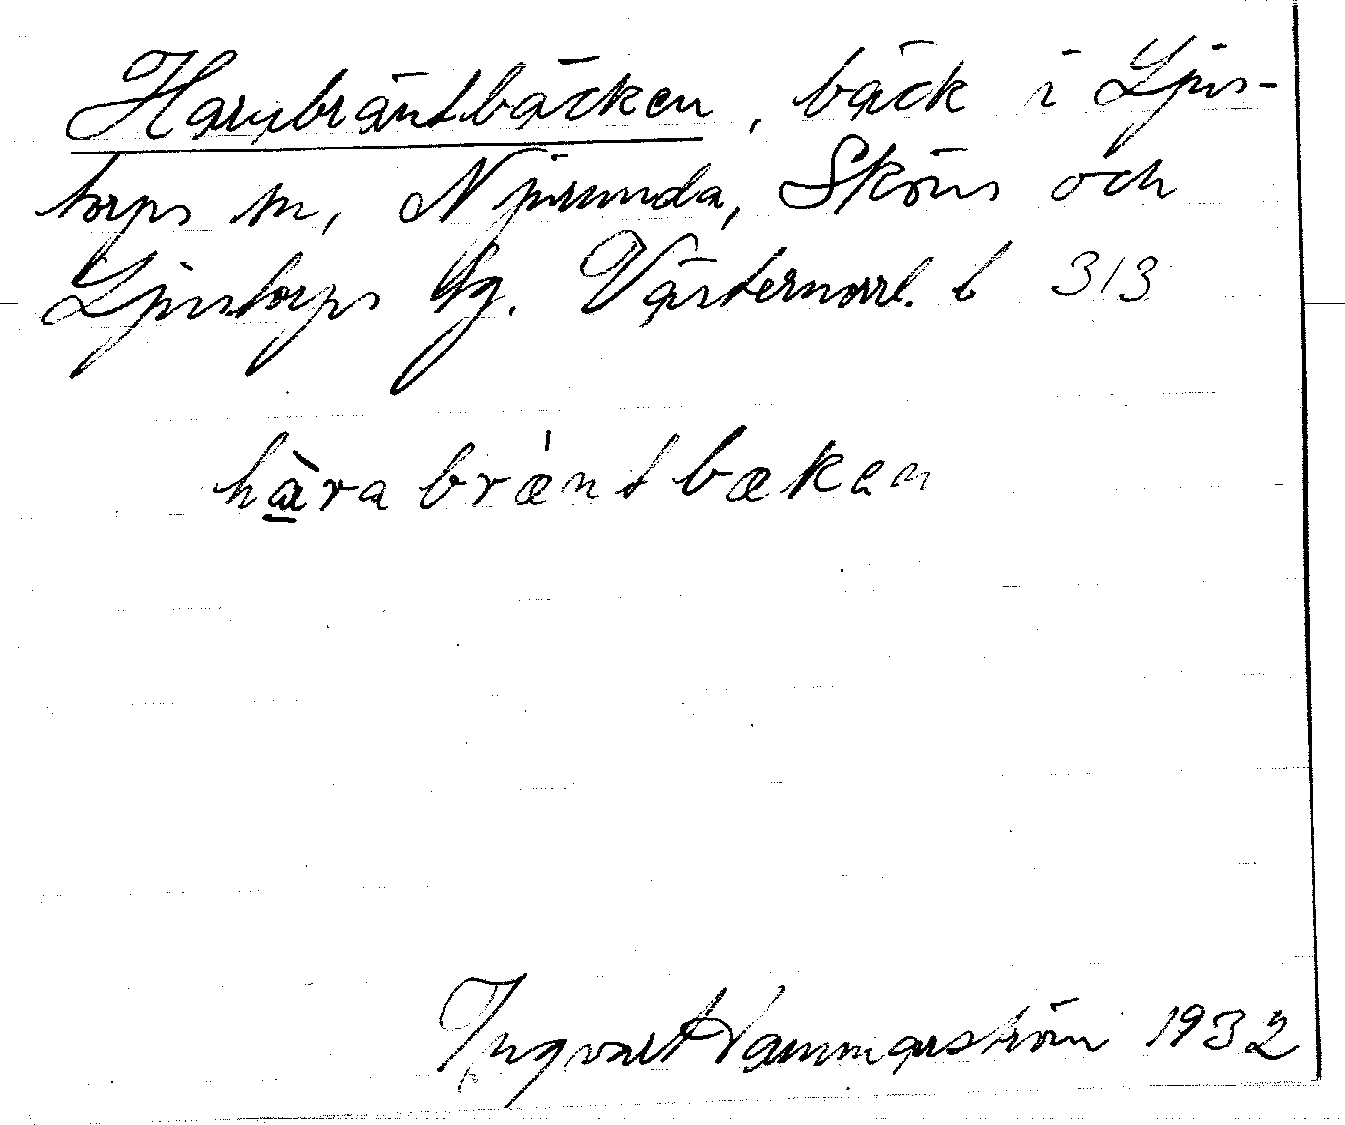 Harubräntbäcken, bäck i Ljus-
torps sn, Njurunda, Sköns och
Ljustorps tg. Västernorrl. l 313
hà̱ra bræ̀ntbæken
Ingvart Hammarström 1932